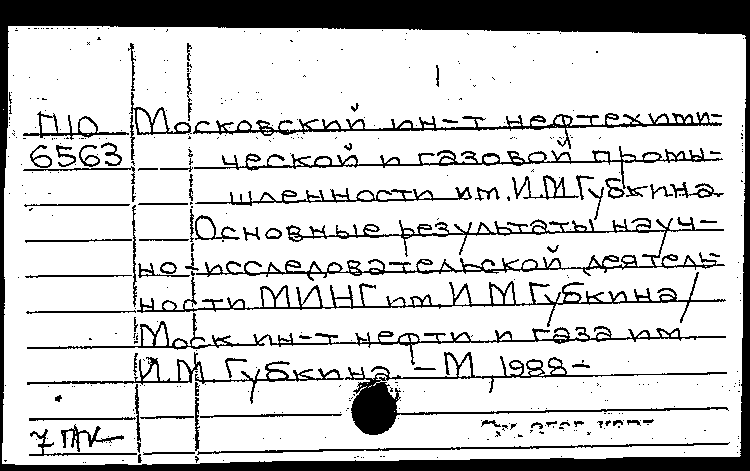 П10 Московский ин-т нефтехими-
6563 ческой и газовой промы-
шленности им. И.М.Губкина
Основные результаты науч-
но-исследовательской деятель-
ности МИНГ им. И.М.Губкина /
Моск ин-т нефти и газа им.
И.М. Губкина. - М, 1988-